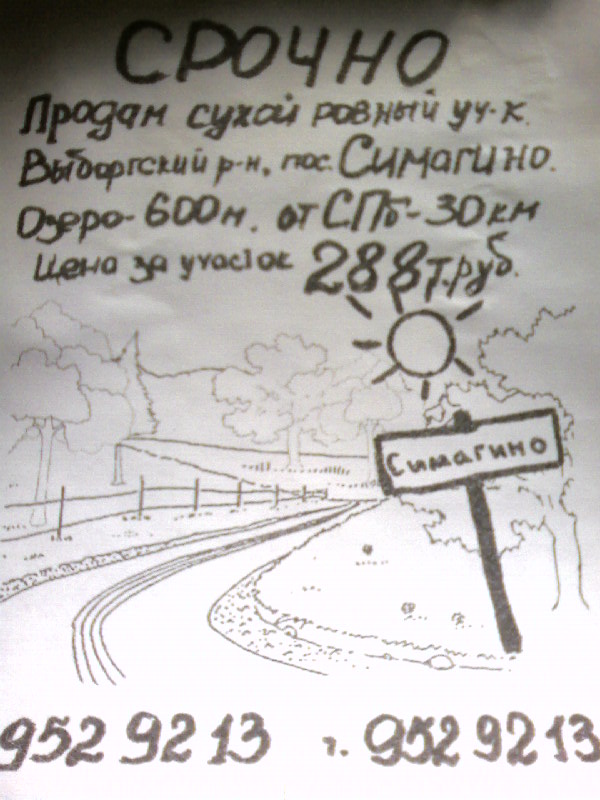 СРОЧНО
Продам сухой ровный уч-к.
Выборгский р-н, пос. Симагино.
Озеро-600м. от СПб-30км
Цена за участок 288т.руб.
Симагино
952 92 13 т. 952 92 13